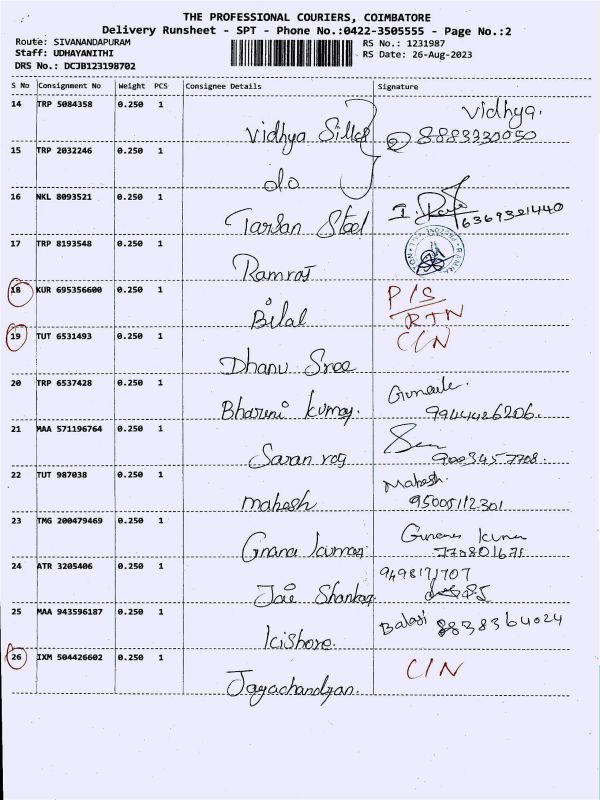 THE PROFESSIONAL COURIERS, COIMBATORE
Delivery Runsheet - SPT - Phone No.:0422-3505555 - Page No.:2
Route: SIVANANDAPURAM RS No.: 1231987
Staff: UDHAYANITHI RS Date: 26-Aug-2023
DRS No.: DCJB123198702
S No Consignment No Weight PCS Consignee Details Signature
14 TRP 5084358 0.250 1 Vidhya Vidhya. 8883330050
15 TRP 2032246 0.250 1 do
16 NKL 8093521 0.250 1 Tarsan Steel 6369321440
17 TRP 8193548 0.250 1 Ramraj
18 KUR 695356600 0.250 1 Bilal P/S RTN
19 TUT 6531493 0.250 1 Dhanu Sree C/N
20 TRP 6537428 0.250 1 Bharuni kumar. 9944426206.
21 MAA 571196764 0.250 1 Saran raj 9003457708.
22 TUT 987038 0.250 1 mahesh Mahesh. 95005112301
23 TMG 200479469 0.250 1 Gnana kumar
24 ATR 3205406 0.250 1 Jai Shankar 9498171707
25 MAA 943596187 0.250 1 Kishore. Balaji 8838364024
26 IXM 504426602 0.250 1 Jayachandran. C/N